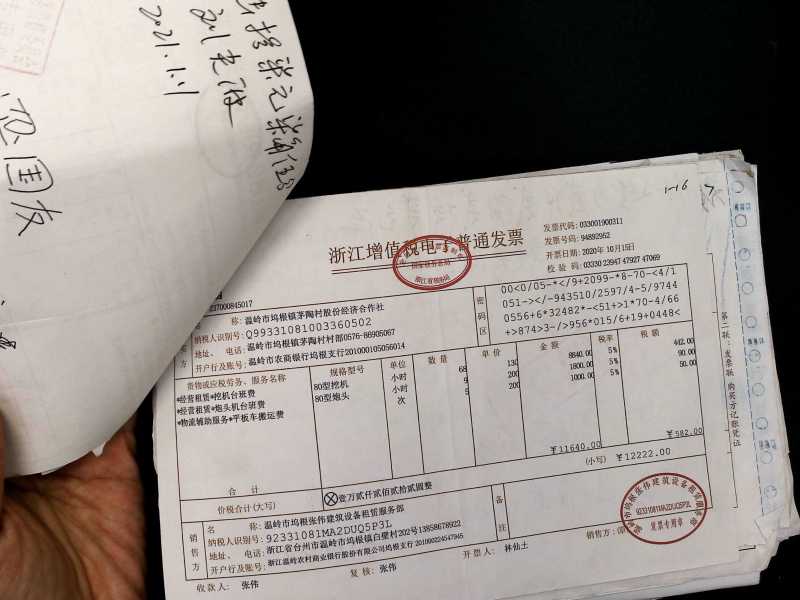 2021.1.11
国友
1-16
浙江增值税电子普通发票
国家税务总局
浙江省税务局
发票代码: 033001900311
发票号码: 94892952
开票日期: 2020年10月15日
校验码: 03330 23947 47927 47069
237000845017
称: 温岭市坞根镇茅陶村股份经济合作社
纳税人识别号: Q99331081003360502
地址、电话: 温岭市坞根镇茅陶村村部0576-86905067
开户行及账号: 温岭市农商银行坞根支行201000105056014
方
密码区
00<0/05-*</9+2099-*8-70-<4/1
051-></-943510/2597/4-5/9744
0556+6*32482*-<51+>1*70-4/66
+>874>3-/>956*015/6+19+0448<
货物或应税劳务、服务名称 规格型号 单位 数量 单价 金额 税率 税额
*经营租赁*挖机台班费 80型挖机 小时 68 130 8840.00 5% 442.00
*经营租赁*炮头机台班费 80型炮头 小时 9 200 1800.00 5% 90.00
*物流辅助服务*平板车搬运费 次 5 200 1000.00 5% 50.00
合计 ¥11640.00 ¥582.00
价税合计(大写) ⊗壹万贰仟贰佰贰拾贰圆整 (小写) ¥12222.00
销售方
名称: 温岭市坞根张伟建筑设备租赁服务部
纳税人识别号: 92331081MA2DUQ5P3L
地址、电话: 浙江省台州市温岭市坞根镇白壁村202号13858678922
开户行及账号: 浙江温岭农村商业银行股份有限公司坞根支行201000224547945
备注
收款人: 张伟 复核: 张伟 开票人: 林仙土 销售方:
92331081MA2DUQ5P3L
发票专用章
第二联:发票联 购买方记账凭证